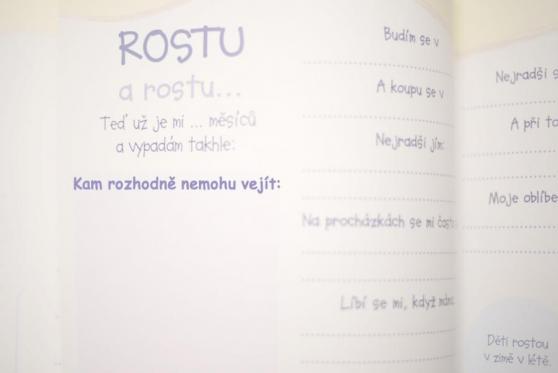 ROSTU
a rostu...
Teď už je mi ... měsíců
a vypadám takhle:
Kam rozhodně nemohu vejít:
Budím se v
A koupu se v
Nejradši jím:
Na procházkách se mi často
Líbí se mi, když
Nejradši
A při
Moje
Děti rostou
v zimě v létě.